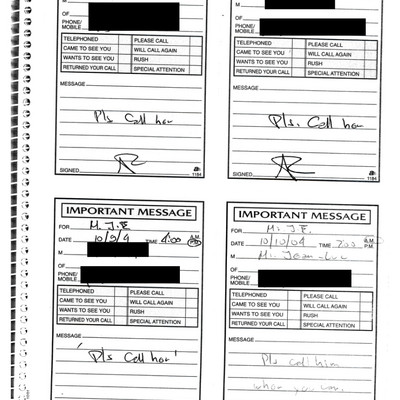 M
OF
PHONE/
MOBILE
TELEPHONED PLEASE CALL
CAME TO SEE YOU WILL CALL AGAIN
WANTS TO SEE YOU RUSH
RETURNED YOUR CALL SPECIAL ATTENTION
MESSAGE
Pls Call her
SIGNED
1184
OF
PHONE/
MOBILE
TELEPHONED PLEASE CALL
CAME TO SEE YOU WILL CALL AGAIN
WANTS TO SEE YOU RUSH
RETURNED YOUR CALL SPECIAL ATTENTION
MESSAGE
Pls. Call her
SIGNED
1184
IMPORTANT MESSAGE
FOR M. J.E
DATE 10/9/4 TIME 4:00 A.M. P.M.
M
OF
PHONE/
MOBILE
TELEPHONED PLEASE CALL
CAME TO SEE YOU WILL CALL AGAIN
WANTS TO SEE YOU RUSH
RETURNED YOUR CALL SPECIAL ATTENTION
MESSAGE
'Pls Call her'
IMPORTANT MESSAGE
FOR M. J.E.
DATE 10/10/04 TIME A.M. P.M.
M. Jean-Luc
OF
PHONE/
MOBILE
TELEPHONED PLEASE CALL
CAME TO SEE YOU WILL CALL AGAIN
WANTS TO SEE YOU RUSH
RETURNED YOUR CALL SPECIAL ATTENTION
MESSAGE
Pls call him
when you